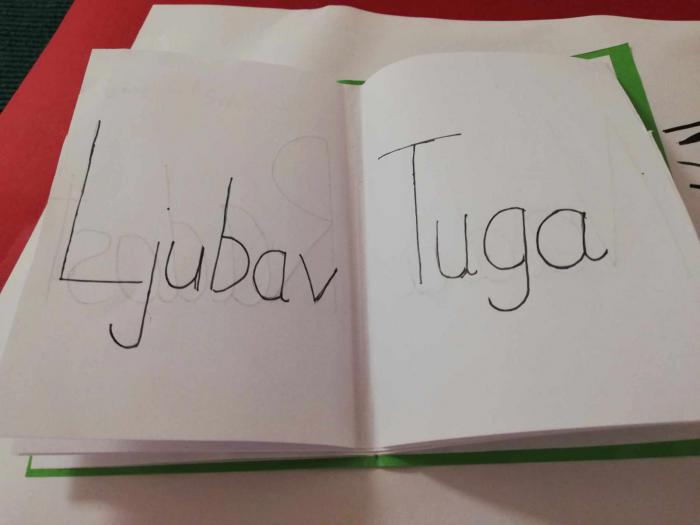 Ljubav
Tuga